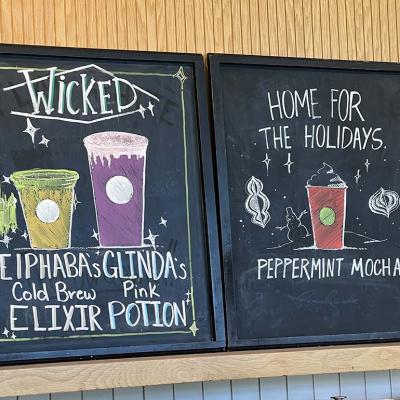 WICKED
ElPHABA's GLINDA's
Cold Brew Pink
ELIXIR POTION
HOME FOR
THE HOLIDAYS.
PEPPERMINT MOCHA